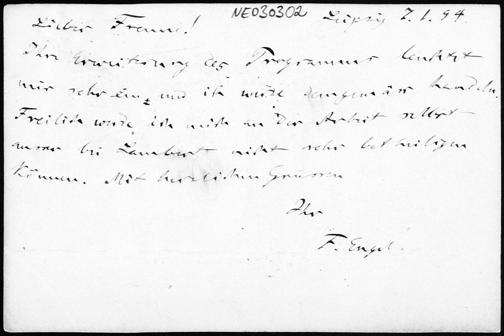 NE030302
Lieber Freund! Leipzig 7.1.94.
Ihre Erweiterung des Programms leuchtet
mir sehr ein, und ich werde demgemäss handeln.
Freilich werde ich mich an der Arbeit selbst
ausser bei Lambert nicht sehr betheiligen
können. Mit herzlichen Grüssen
Ihr
F. Engel.